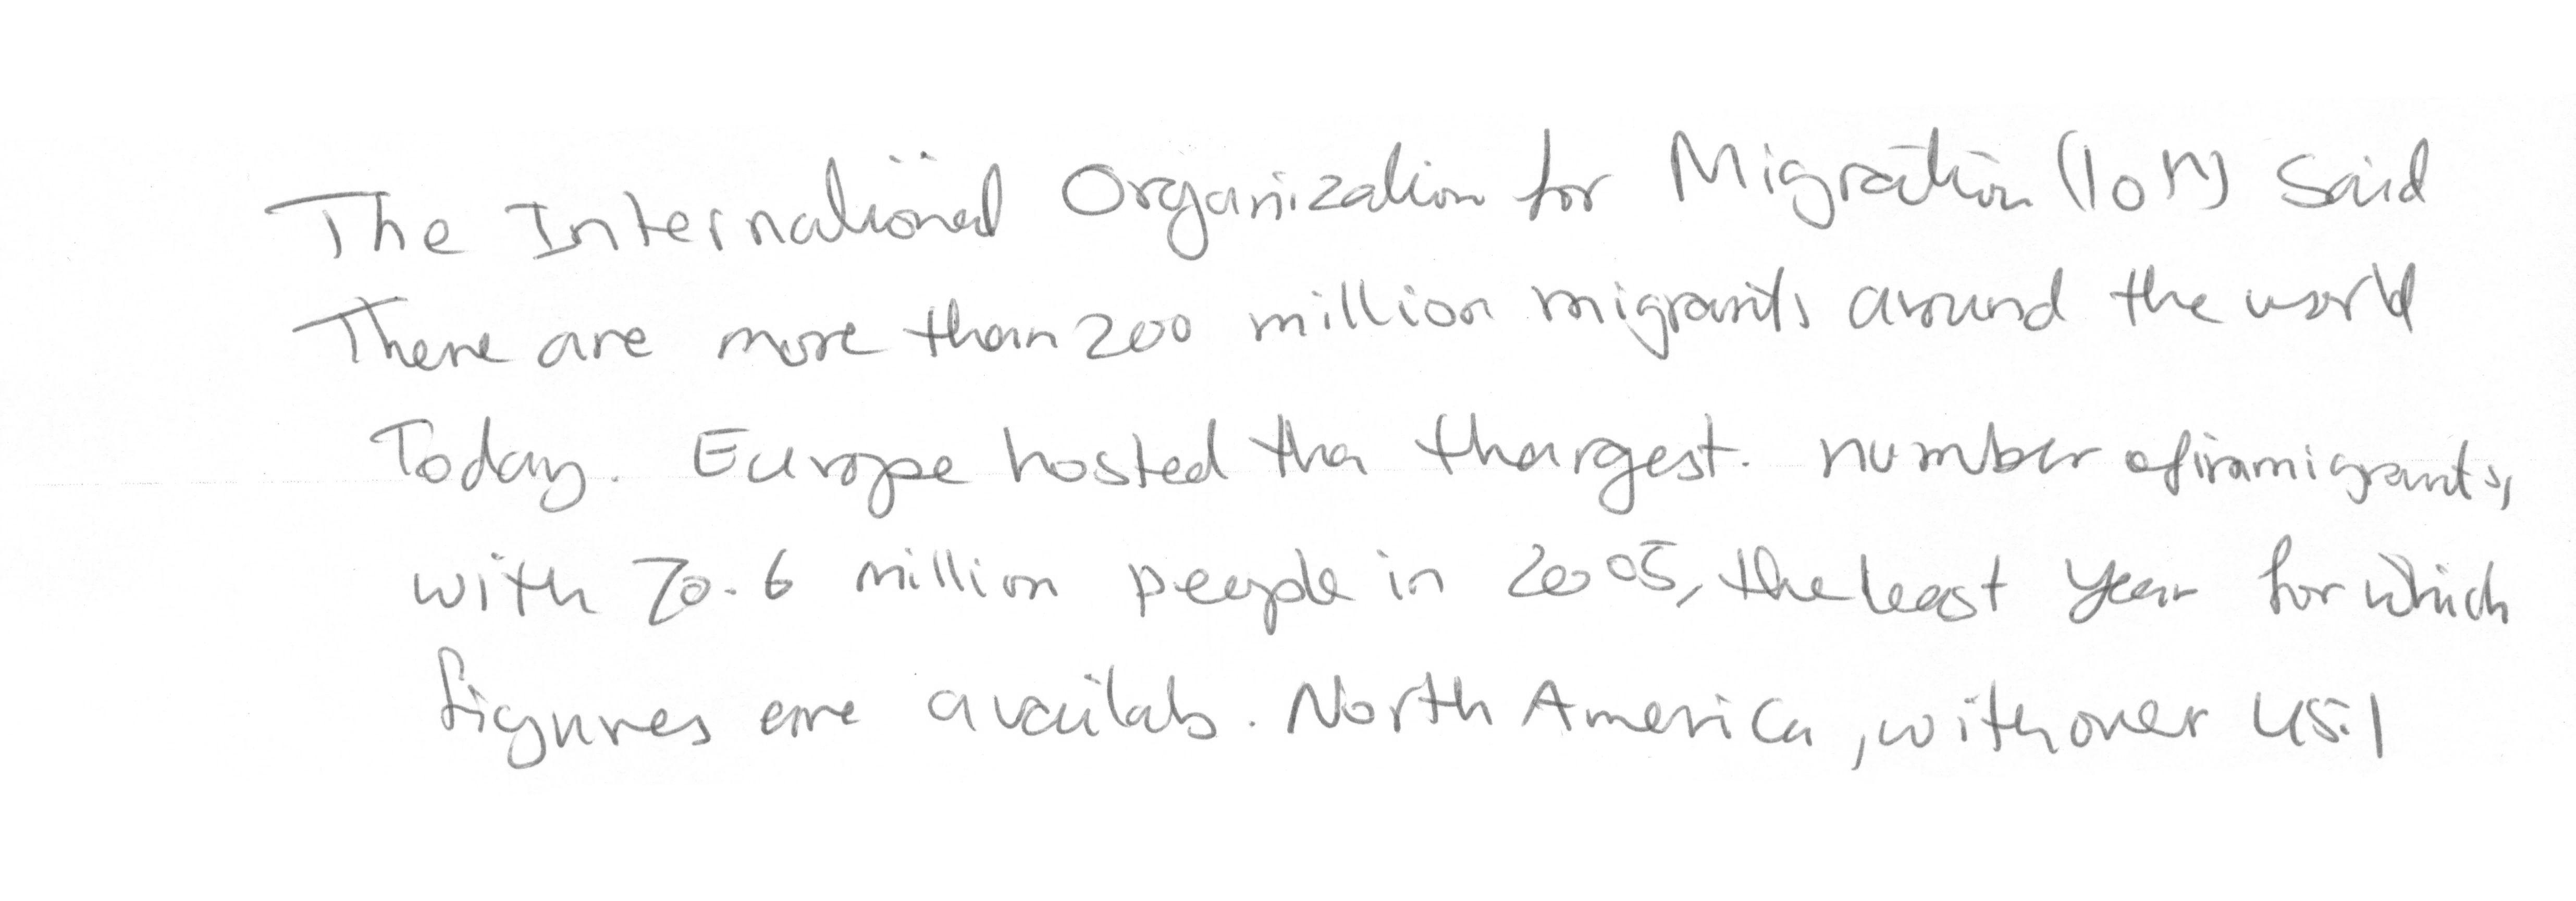 The International Organization for Migration (IOM) said
There are more than 200 million migrants around the world
Today. Europe hosted tha thargest. number of immigrants,
with 70.6 million people in 2005, the least year for which
figures are availab. North America, with over 45.1